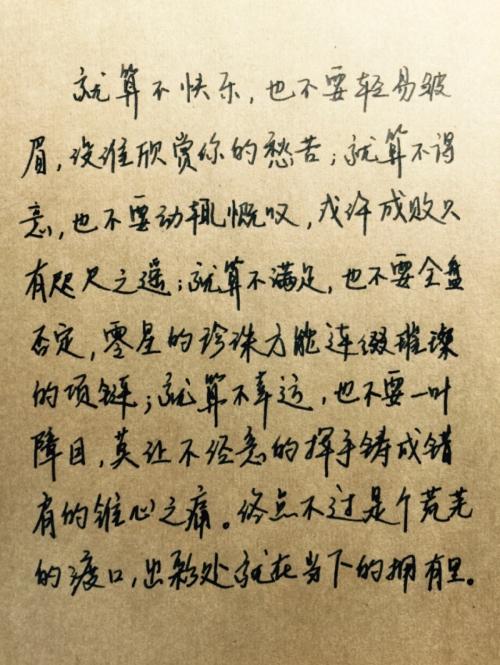 就算不快乐，也不要轻易皱
眉，没谁欣赏你的愁苦；就算不得
意，也不要动辄慨叹，或许成败只
有咫尺之遥；就算不满足，也不要全盘
否定，零星的珍珠方能连缀璀璨
的项链；就算不幸运，也不要一叶
障目，莫让不经意的挥手铸成错
有的锥心之痛。终点不过是个荒芜
的渡口，出彩处就在当下的拥有里。